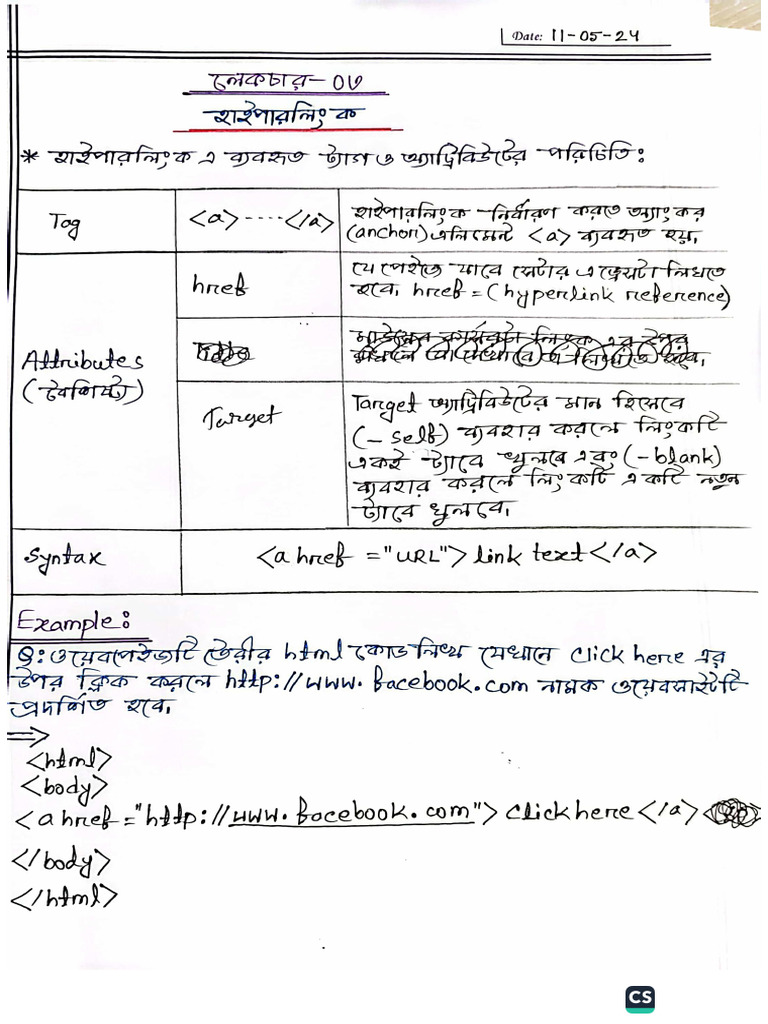 Date: 11-05-24
লেকচার-০৩
হাইপারলিংক
* হাইপারলিংক এ ব্যবহৃত ট্যাগ ও অ্যাট্রিবিউটের পরিচিতিঃ
Tag
<a>----</a>
হাইপারলিংক নির্ধারণ করতে অ্যাংকর
(anchor) এলিমেন্ট <a> ব্যবহৃত হয়।
Attributes
(বৈশিষ্ট্য)
href
যে পেইজে যাবে সেটার এড্রেসটা লিখতে
হবে। href=(hyperlink reference)
Target
Target অ্যাট্রিবিউটের মান হিসেবে
(-self) ব্যবহার করলে লিংকটি
একই ট্যাবে খুলবে এবং (-blank)
ব্যবহার করলে লিংকটি একটি নতুন
ট্যাবে খুলবে।
Syntax
<a href ="URL"> link text</a>
Example:
Q: ওয়েবপেইজটি তৈরীর html কোড লিখ যেখানে click here এর
উপর ক্লিক করলে http://www.facebook.com নামক ওয়েবসাইটটি
প্রদর্শিত হবে।
=>
<html>
<body>
<a href="http://www.facebook.com"> click here </a>
</body>
</html>
CS